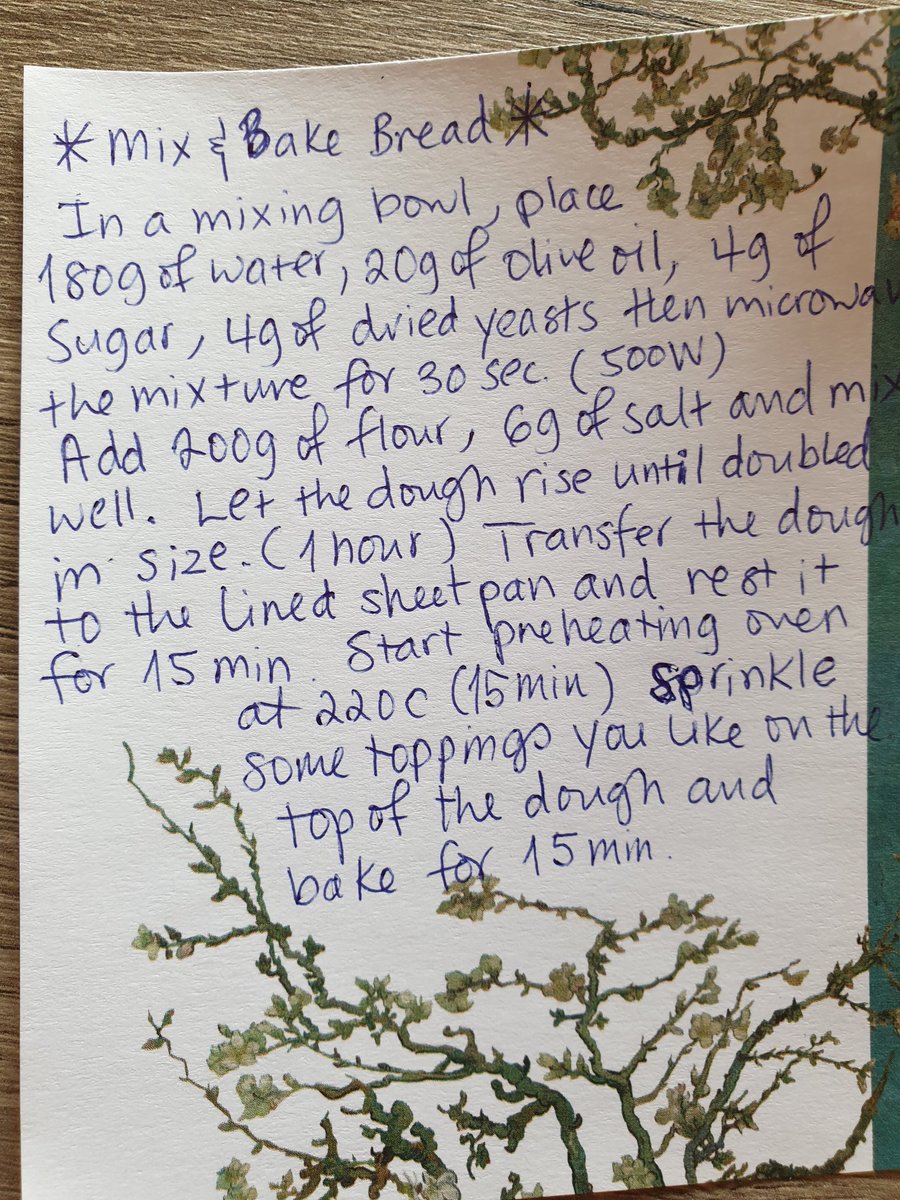 * Mix & Bake Bread *
In a mixing bowl, place
180g of water, 20g of olive oil, 4g of
Sugar, 4g of dried yeasts then microwav
the mixture for 30 sec. (500W)
Add 200g of flour, 6g of salt and mix
well. Let the dough rise until doubled
in size. (1 hour) Transfer the dough
to the lined sheet pan and rest it
for 15 min. Start preheating oven
at 220C (15min) Sprinkle
some toppings you like on the
top of the dough and
bake for 15 min.